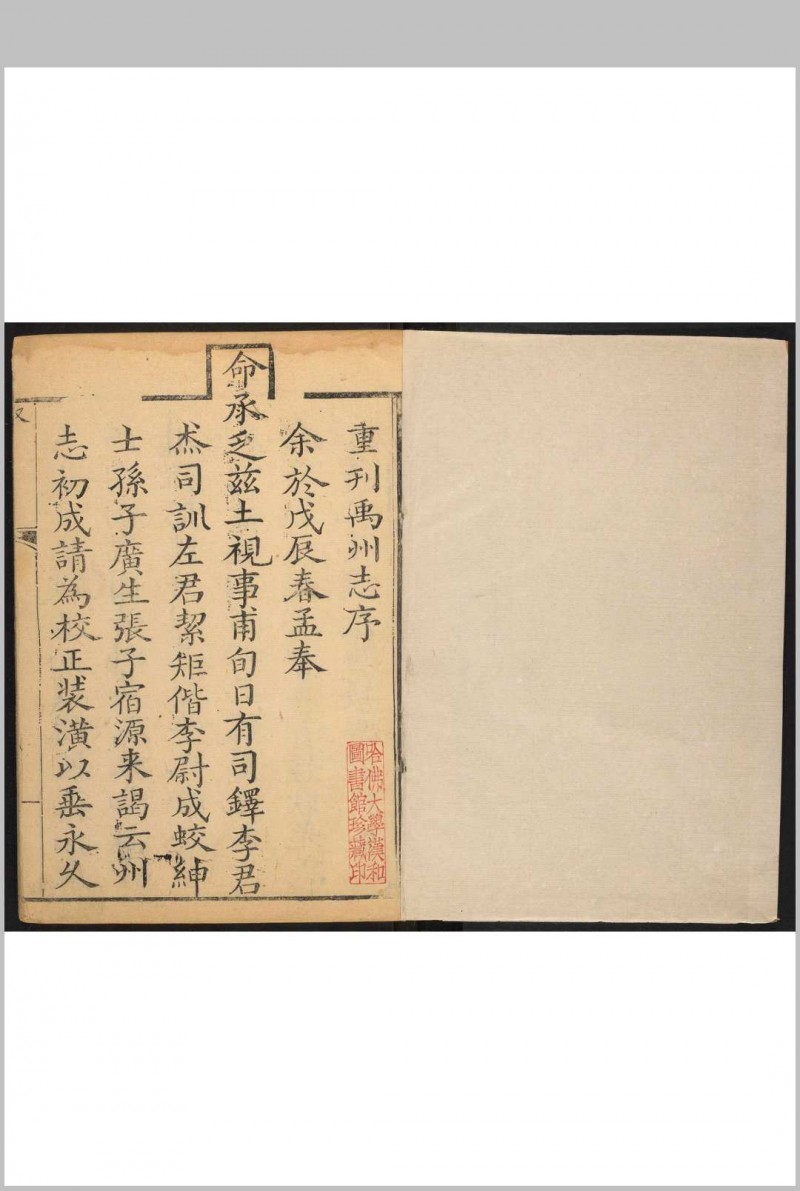 重刊禹州志序
余於戊辰春孟奉
命承乏兹土視事甫旬日有司鐸李君
杰司訓左君絜矩偕李尉成蛟紳
士孫子廣生張子宿源来謁云州
志初成請為校正装潢以垂永久
哈佛大學漢和
圖書館珍藏印